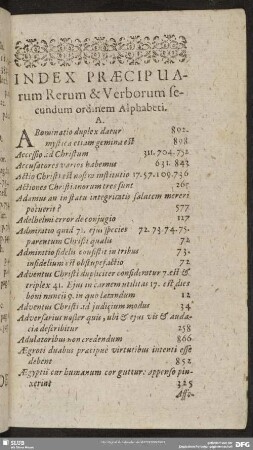 INDEX PRÆCIPUA-
rum Rerum & Verborum se-
cundum ordinem Alphabeti.
A.
ABominatio duplex datur 802.
mystica etiam gemina est 808
Accessio ad Christum 311. 704. 752
Accusatores varios habemus 631. 843
Actio Christi est nostra instructio 17. 57. 109. 736
Actiones Christianorum tres sunt 265
Adamus an in statu integritatis salutem mereri
potuerit? 577
Adelhelmi error de conjugio 127
Admiratio quid 72. ejus species 72. 73. 74. 75.
parentum Christi qualis 72
Admiratio fidelis consistit in tribus 73.
infidelium est obstupefactio 72
Adventus Christi dupliciter consideratur 7. est &
triplex 41. Ejus in carnem utilitas 17. est diei
boni nuncii 9. in quo lætandum 12
Adventus Christi ad judicium modus 34
Adversarius noster quis, ubi & ejus vis & auda-
cia describitur 258
Adulatoribus non credendum 866.
Ægroti duabus præcipuè virtutibus intenti esse
debent 852
Ægyptii cor humanum cor gutturi appenso pin-
xerint 325
Affe-
SLUB
DFG